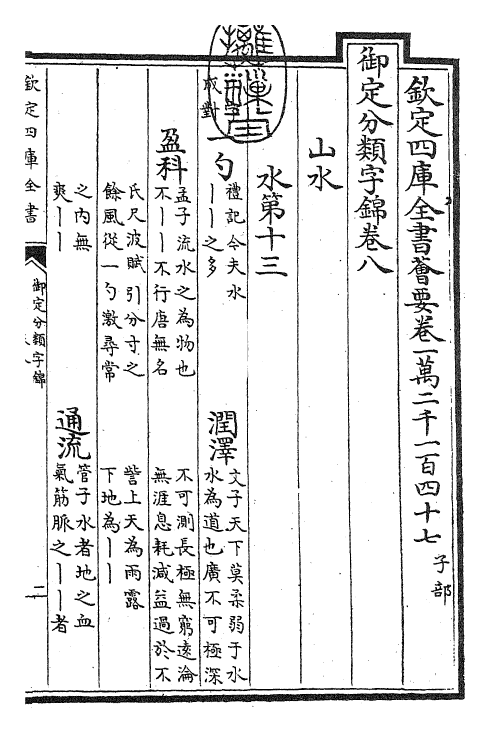 欽定四庫全書薈要卷一萬二千一百四十七 子部
御定分類字錦卷八
山水
水第十三
成對
一勺
禮記今夫水
丨丨之多
盈科
孟子流水之為物也
不丨丨不行唐無名
氏尺波賦引分寸之
餘風從一勺激尋常
之內無
爽丨丨
潤澤
文子天下莫柔弱于水
水為道也廣不可極深
不可測長極無窮遠淪
無涯息耗減益過於不
訾上天為雨露
下地為丨丨
通流
管子水者地之血
氣筋脈之丨丨者
欽定四庫全書
御定分類字錦
二